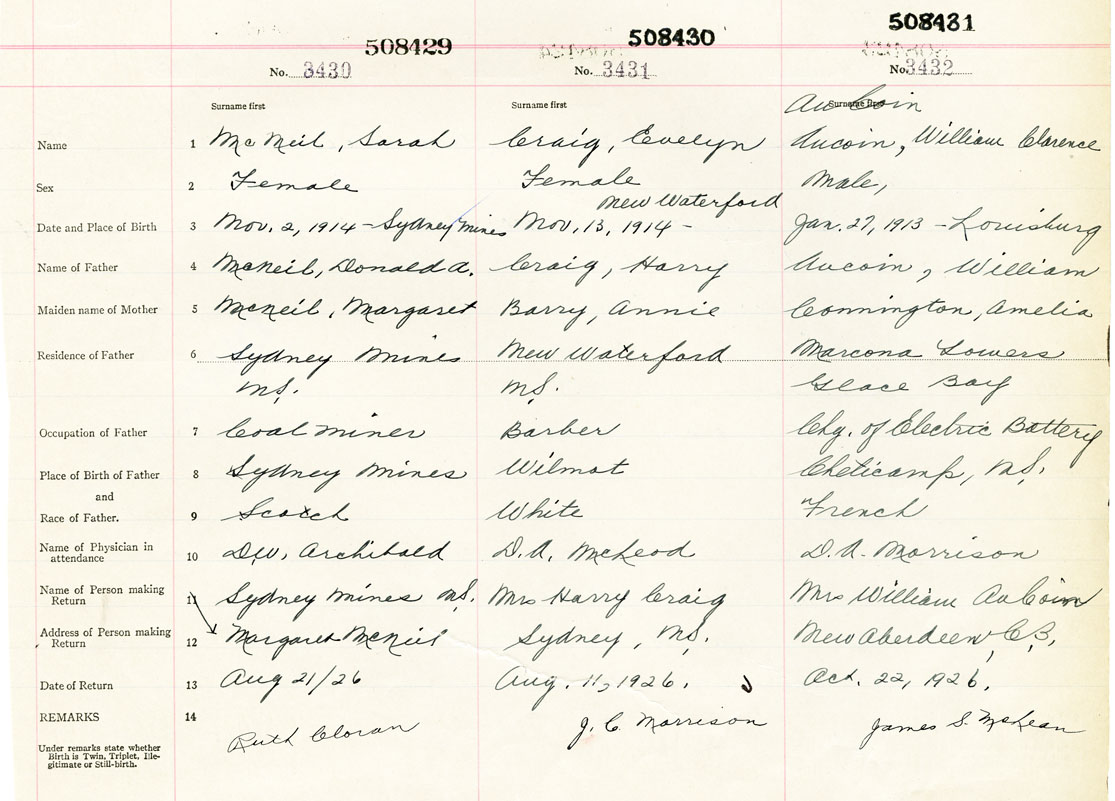 508429 508430 508431
No. 3430 No. 3431 No. 3432
Surname first Surname first Surname first
AuCoin
Name 1 McNeil, Sarah Craig, Evelyn Aucoin, William Clarence
Sex 2 Female Female Male,
New Waterford
Date and Place of Birth 3 Nov. 2, 1914 - Sydney Mines Nov. 13, 1914 - Jan. 27, 1913 - Louisburg
Name of Father 4 McNeil, Donald A. Craig, Harry Aucoin, William
Maiden name of Mother 5 McNeil, Margaret Barry, Annie Connington, Amelia
Residence of Father 6 Sydney Mines New Waterford Marcona Towers
N.S. N.S. Glace Bay
Occupation of Father 7 Coal Miner Barber Chg. of Electric Battery
Place of Birth of Father 8 Sydney Mines Wilmot Cheticamp, N.S.
and
Race of Father. 9 Scotch White French
Name of Physician in attendance 10 D.W. Archibald D.A. McLeod D.A. Morrison
Name of Person making Return 11 Sydney Mines N.S. Mrs Harry Craig Mrs William AuCoin
Address of Person making Return 12 Margaret McNeil Sydney, N.S. New Aberdeen, C.B.
Date of Return 13 Aug 21/26 Aug. 11, 1926. Oct. 22, 1926.
REMARKS 14 Ruth Cloran J. C. Morrison James S. McLean
Under remarks state whether
Birth is Twin, Triplet, Ille-
gitimate or Still-birth.